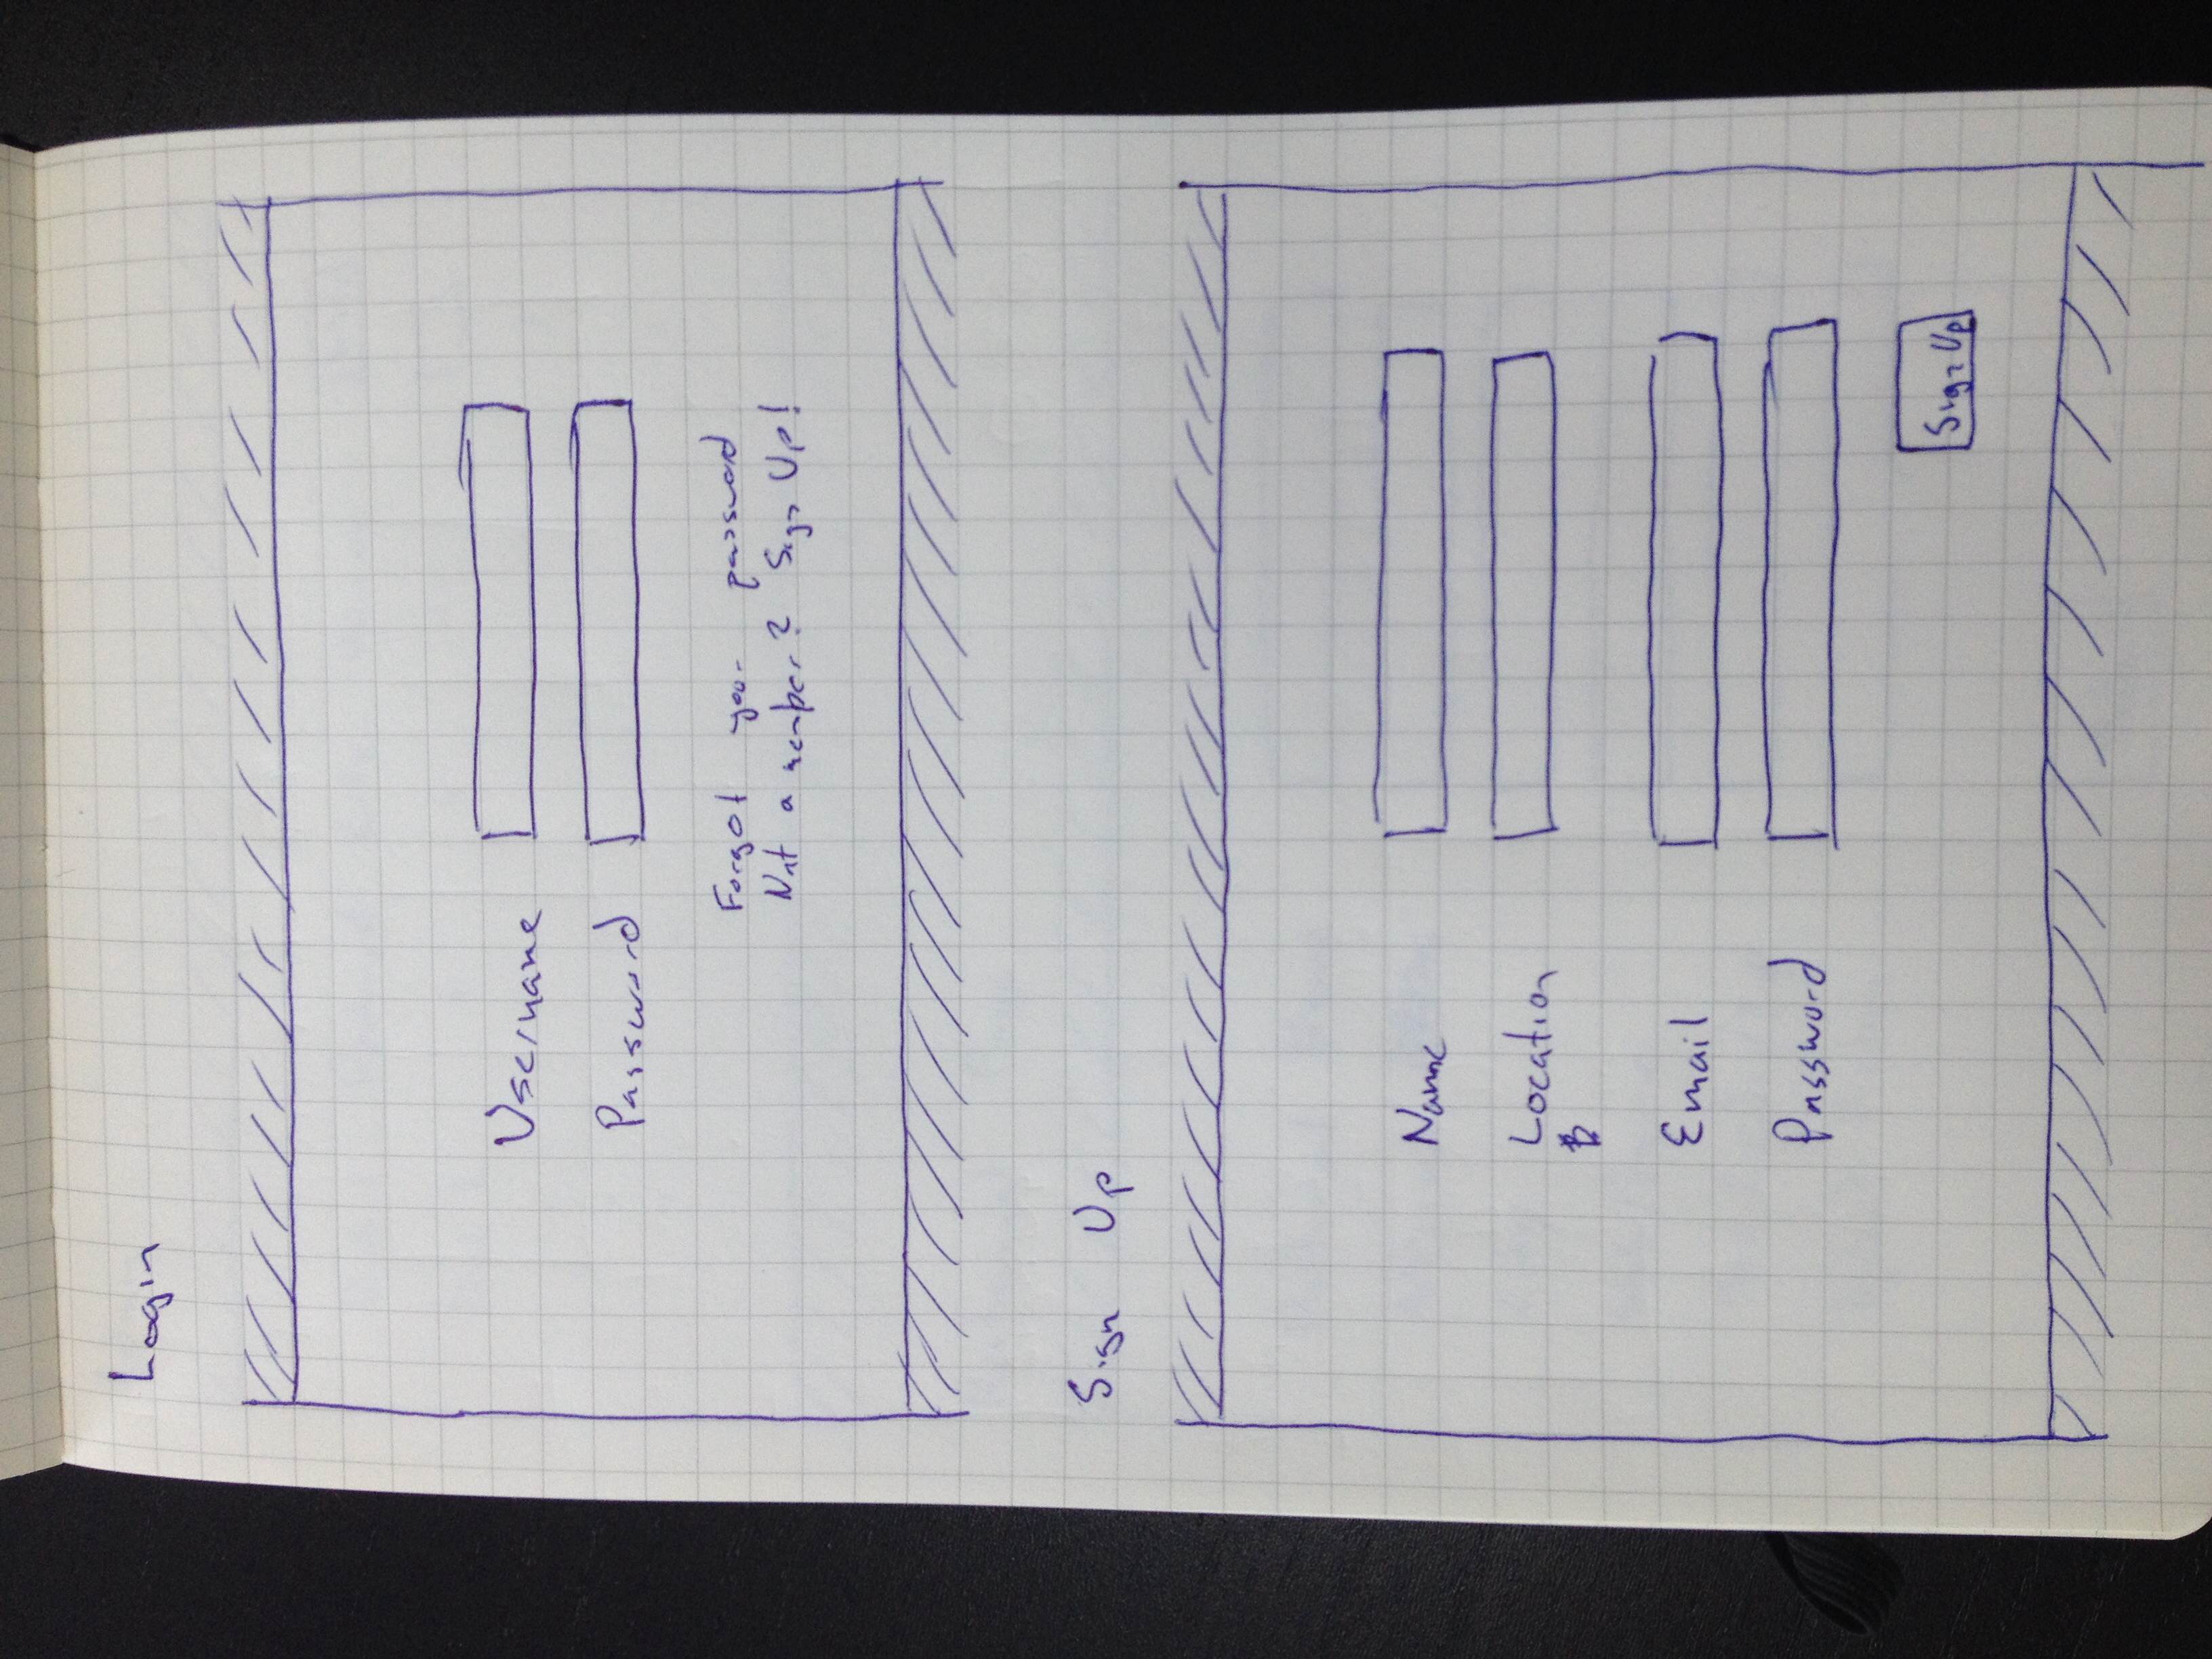 Login
Username
Password
Forgot your password
Not a member? Sign Up!
Sign Up
Name
Location
B
Email
Password
Sign Up